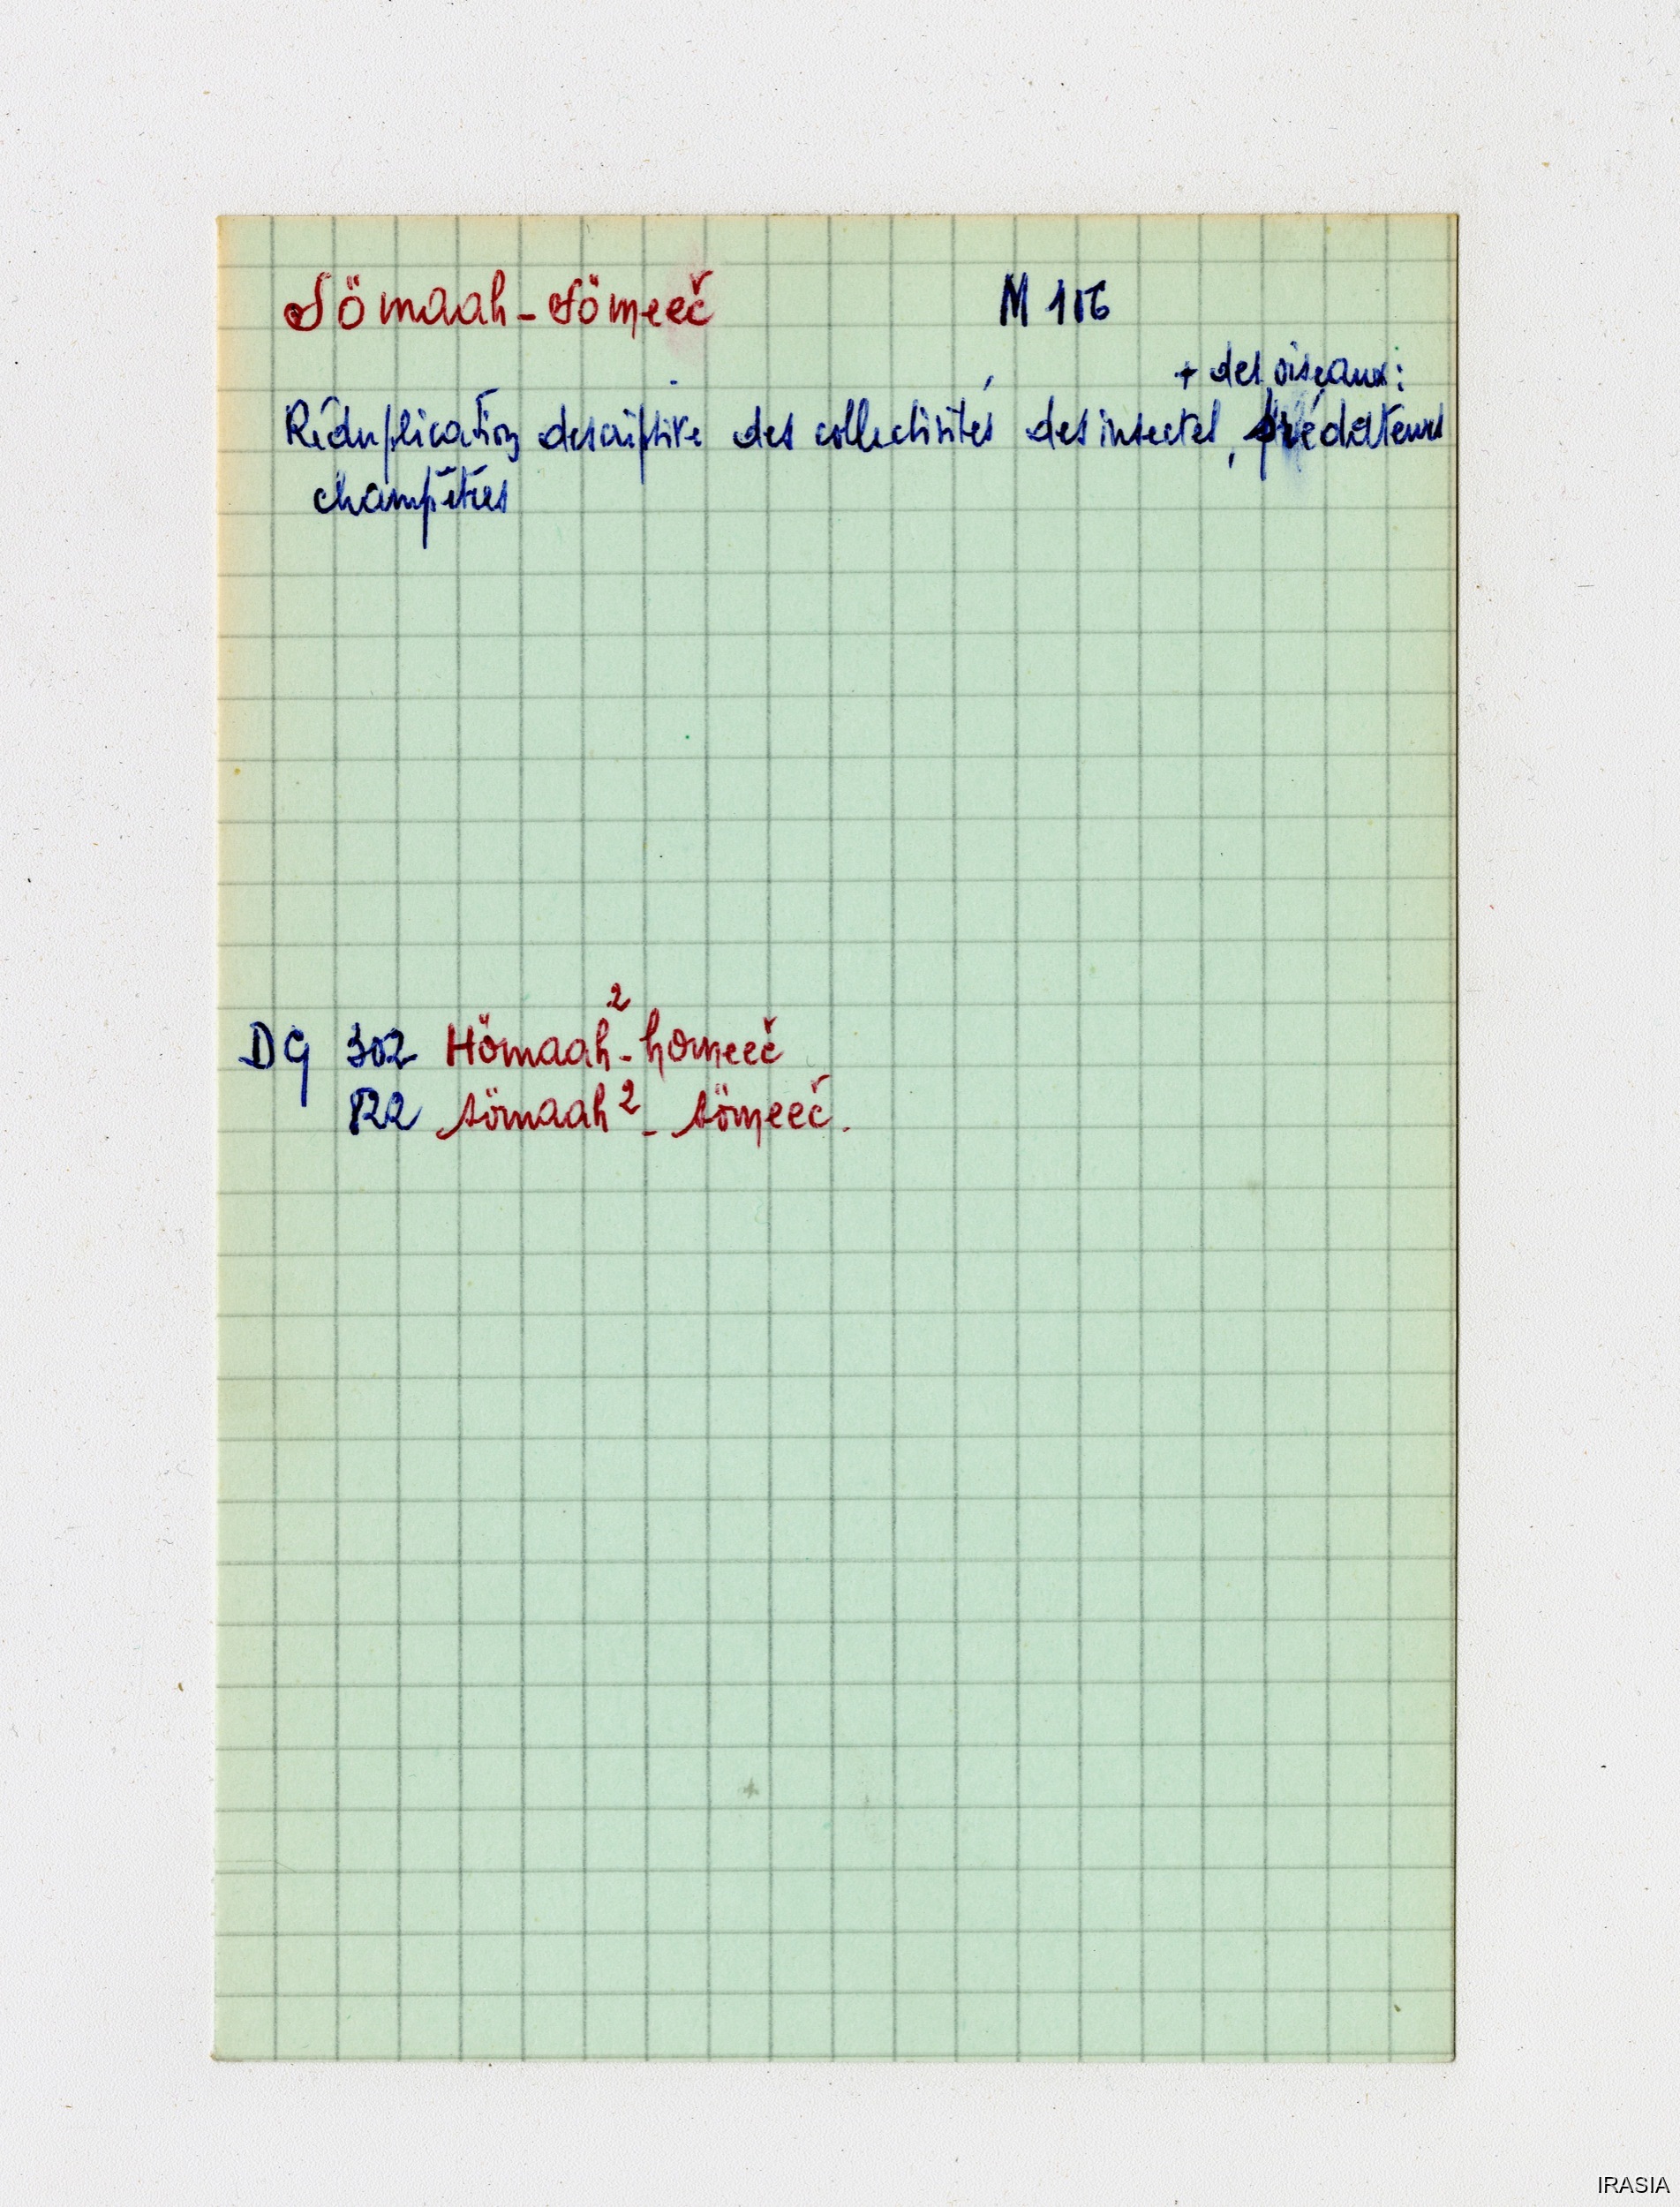 Sömaah-sömeeč M 106
+ des oiseaux:
Réduplication descriptive des collectivités des insectes, prédateurs
champêtres
DG 302 Hömaah²-homeeč
822 sömaah²- sömeeč.
IRASIA